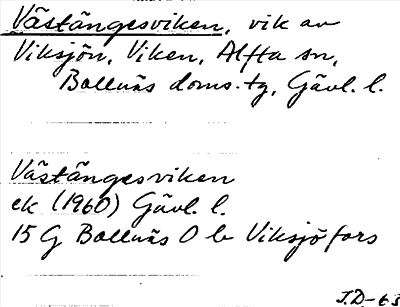 Västängesviken, vik av
Viksjön, Viken, Alfta sn,
Bollnäs doms.tg, Gävl. l.
Västängesviken
ek (1960) Gävl. l.
15 G Bollnäs 0 b Viksjöfors
J.D-63